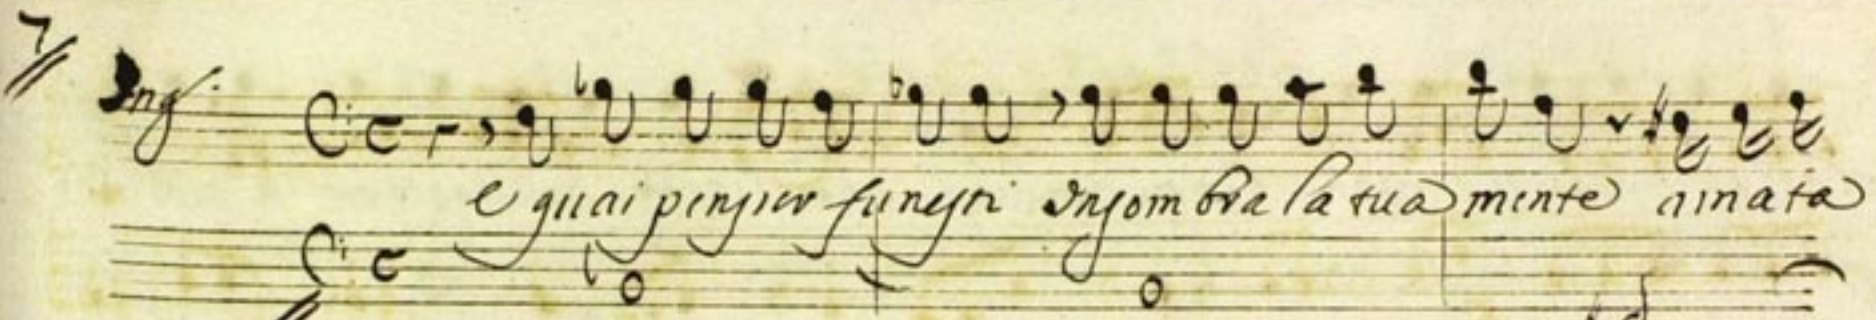 7
Ing.
e quai pensier funesti Ingombra la tua mente amata